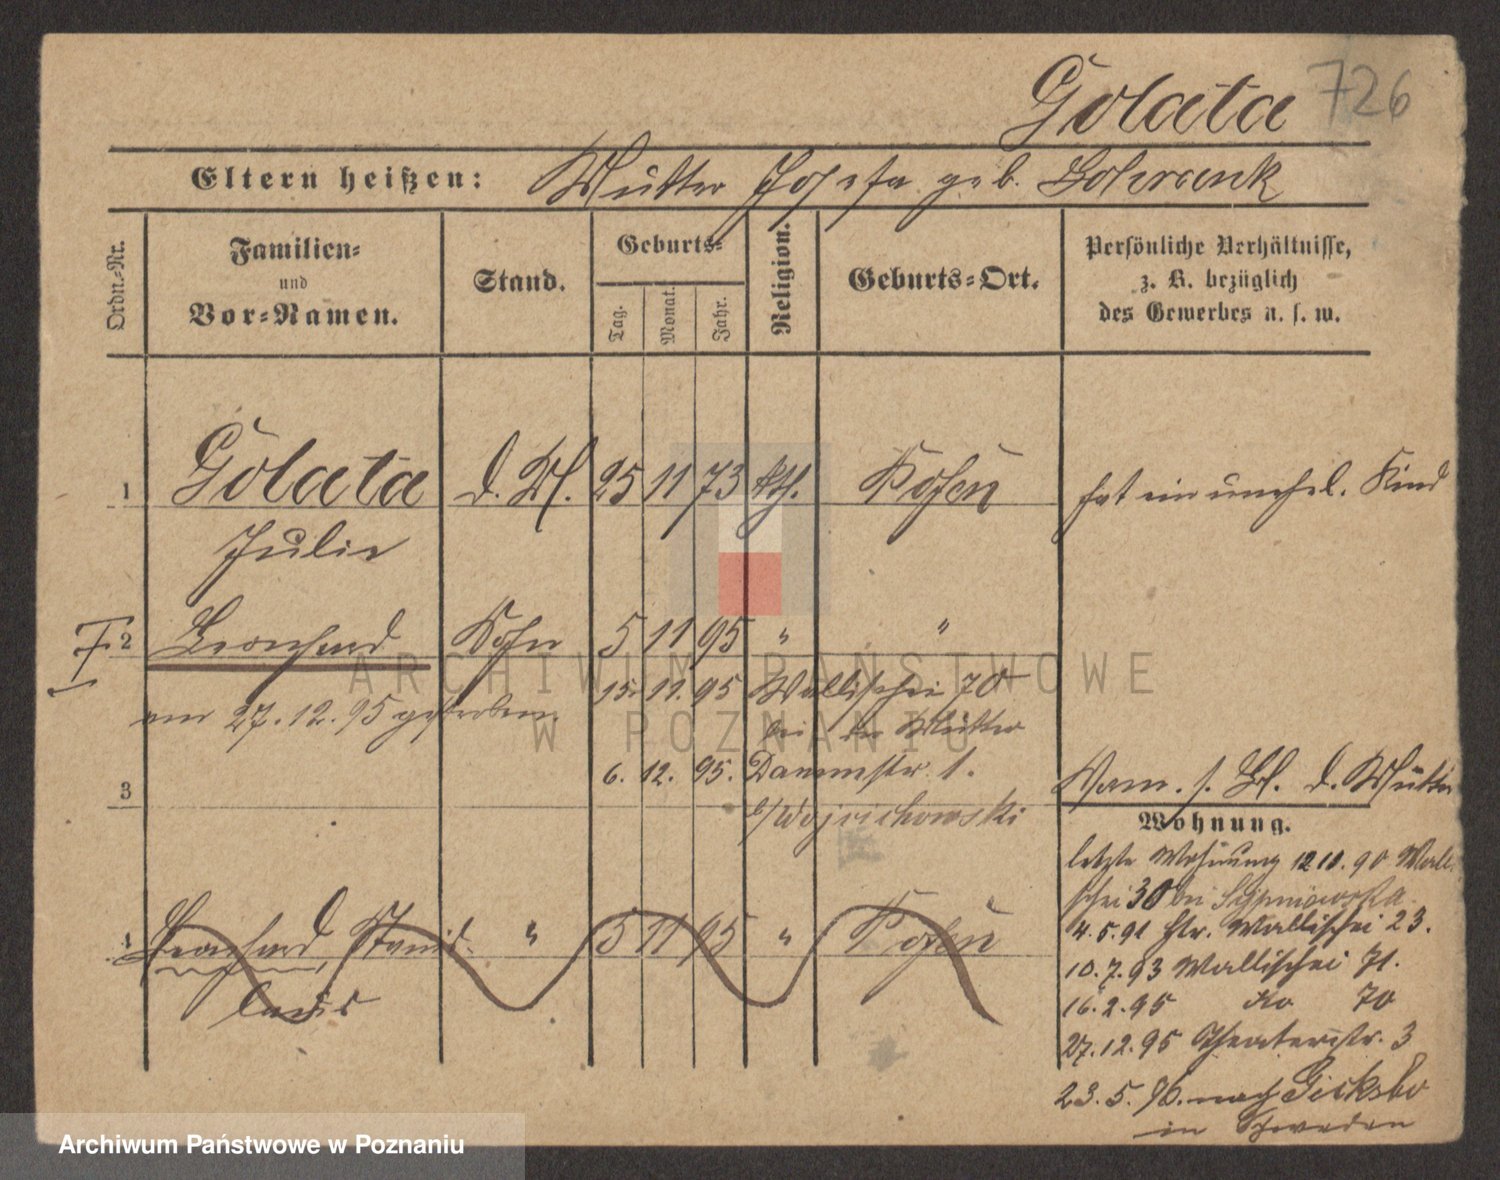 Golata 726
Eltern heißen: Mutter Josefa geb.
Ordn.-Nr.
Familien-
und
Vor-Namen.
Stand.
Geburts-
Tag.
Monat.
Jahr.
Religion.
Geburts-Ort.
Persönliche Verhältnisse,
z. B. bezüglich
des Gewerbes u. s. w.
1 Golata d. M. 25 11 73 kth. Posen hat ein unehel. Kind
Julie
2 Leonhard Sohn 5 11 95 " "
15. 11. 95 Wallischei 70
bei der Mutter
am 27.12.95 gestorben
3 6. 12. 95. Dammstr. 1.
b/Wojcichowski
Nam. s. Bl. d. Mutter
Wohnung.
letzte Wohnung 12 11. 90 Walli-
schei 30 bei
4.5.91 Str. Wallischei 23.
10.7.93 Wallischei 71.
16.2.95 do 70
27.12.95 Theaterstr. 3
23.5.96. nach
in Schweden
4 Leonhard, Stanis- " 5 11 95 " Posen
laus
ARCHIWUM PAŃSTWOWE
W POZNANIU
Archiwum Państwowe w Poznaniu